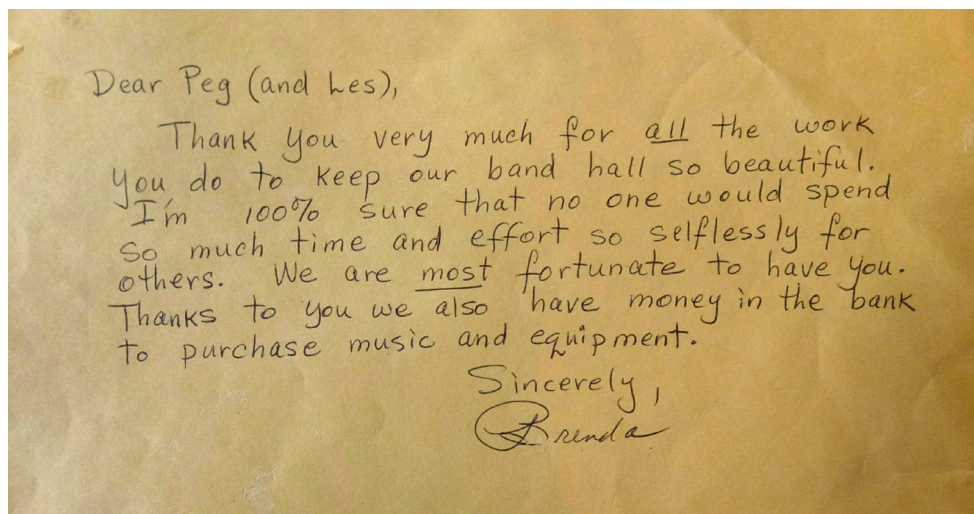 Dear Peg (and Les),
Thank you very much for all the work
you do to keep our band hall so beautiful.
I'm 100% sure that no one would spend
so much time and effort so selflessly for
others. We are most fortunate to have you.
Thanks to you we also have money in the bank
to purchase music and equipment.
Sincerely,
Brenda